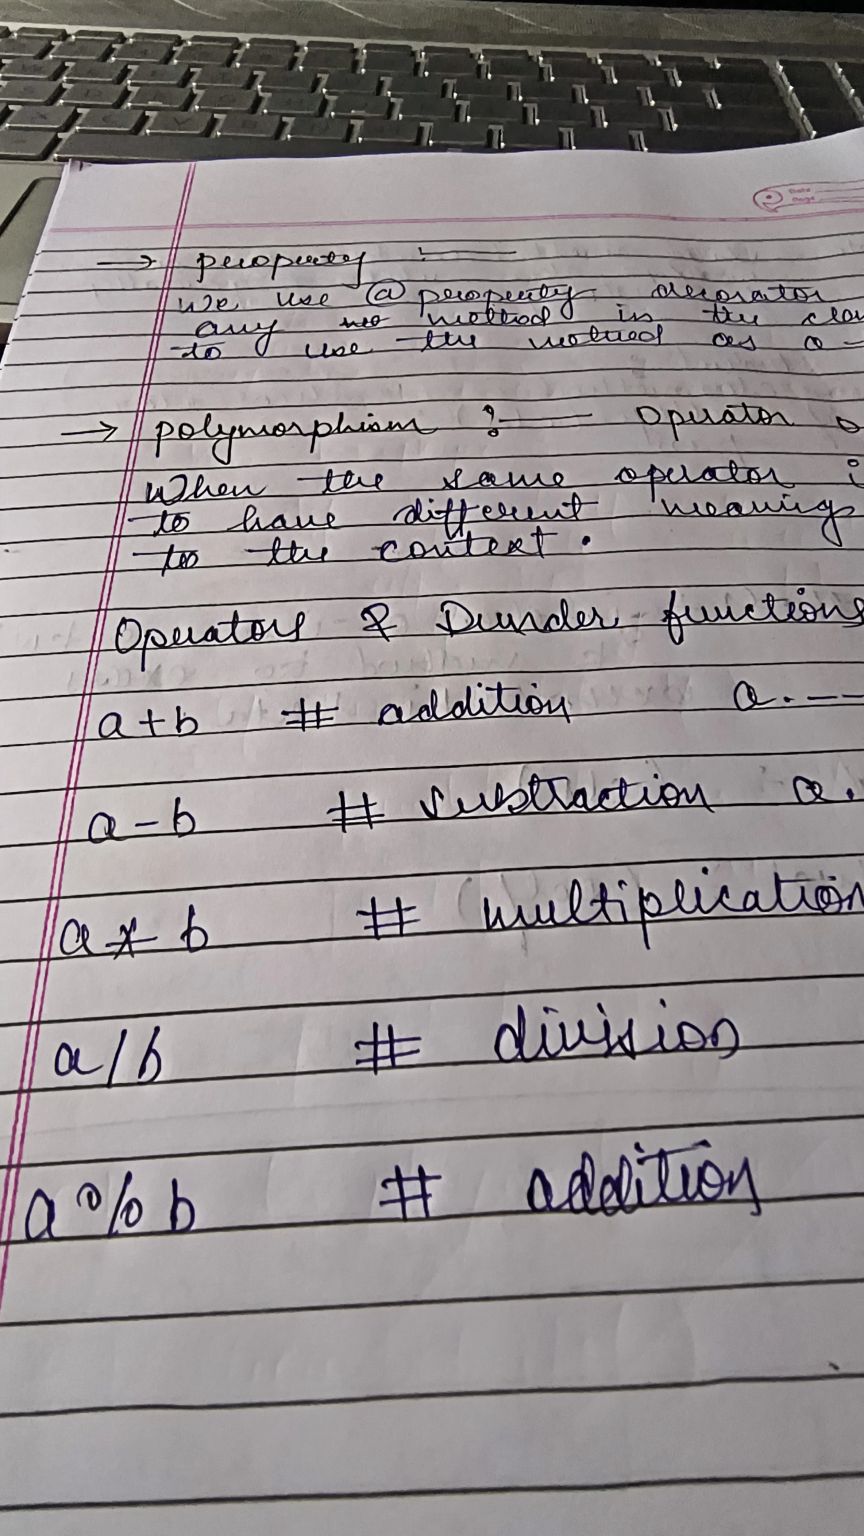 → property :
We use @ property decorator
any method in the
to use the method as a
→ polymorphism : Operator
When the same operator
to have different meaning
to the context.
Operators & Dunder functions
a+b # addition a.__
a-b # subtraction a.
a*b # multiplication
a/b # division
a%b # addition